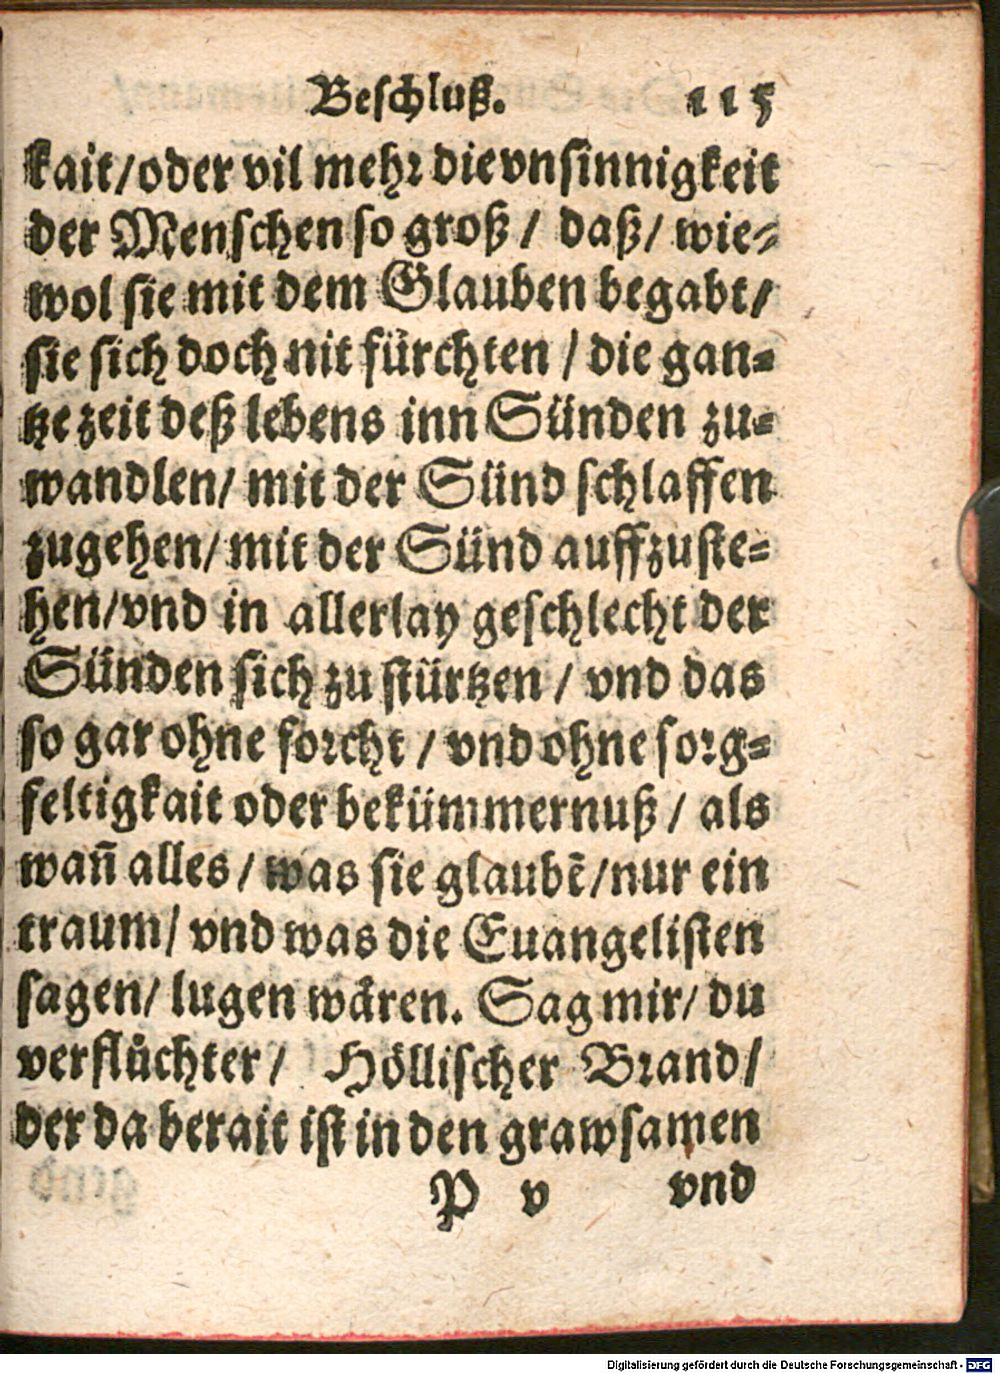 Beschluß. 115
kait/oder vil mehr die vnsinnigkeit
der Menschen so groß / daß/ wie-
wol sie mit dem Glauben begabt/
sie sich doch nit fürchten / die gan-
tze zeit deß lebens inn Sünden zu-
wandlen/ mit der Sünd schlaffen
zugehen/ mit der Sünd auffzuste-
hen/vnd in allerlay geschlecht der
Sünden sich zu stürtzen / vnd das
so gar ohne forcht / vnd ohne sorg-
feltigkait oder bekümmernuß / als
wañ alles / was sie glaubẽ/nur ein
traum/ vnd was die Euangelisten
sagen/ lugen wåren. Sag mir/ du
verflůchter/ Höllischer Brand/
der da berait ist in den grawsamen
P v vnd
Digitalisierung gefördert durch die Deutsche Forschungsgemeinschaft - DFG